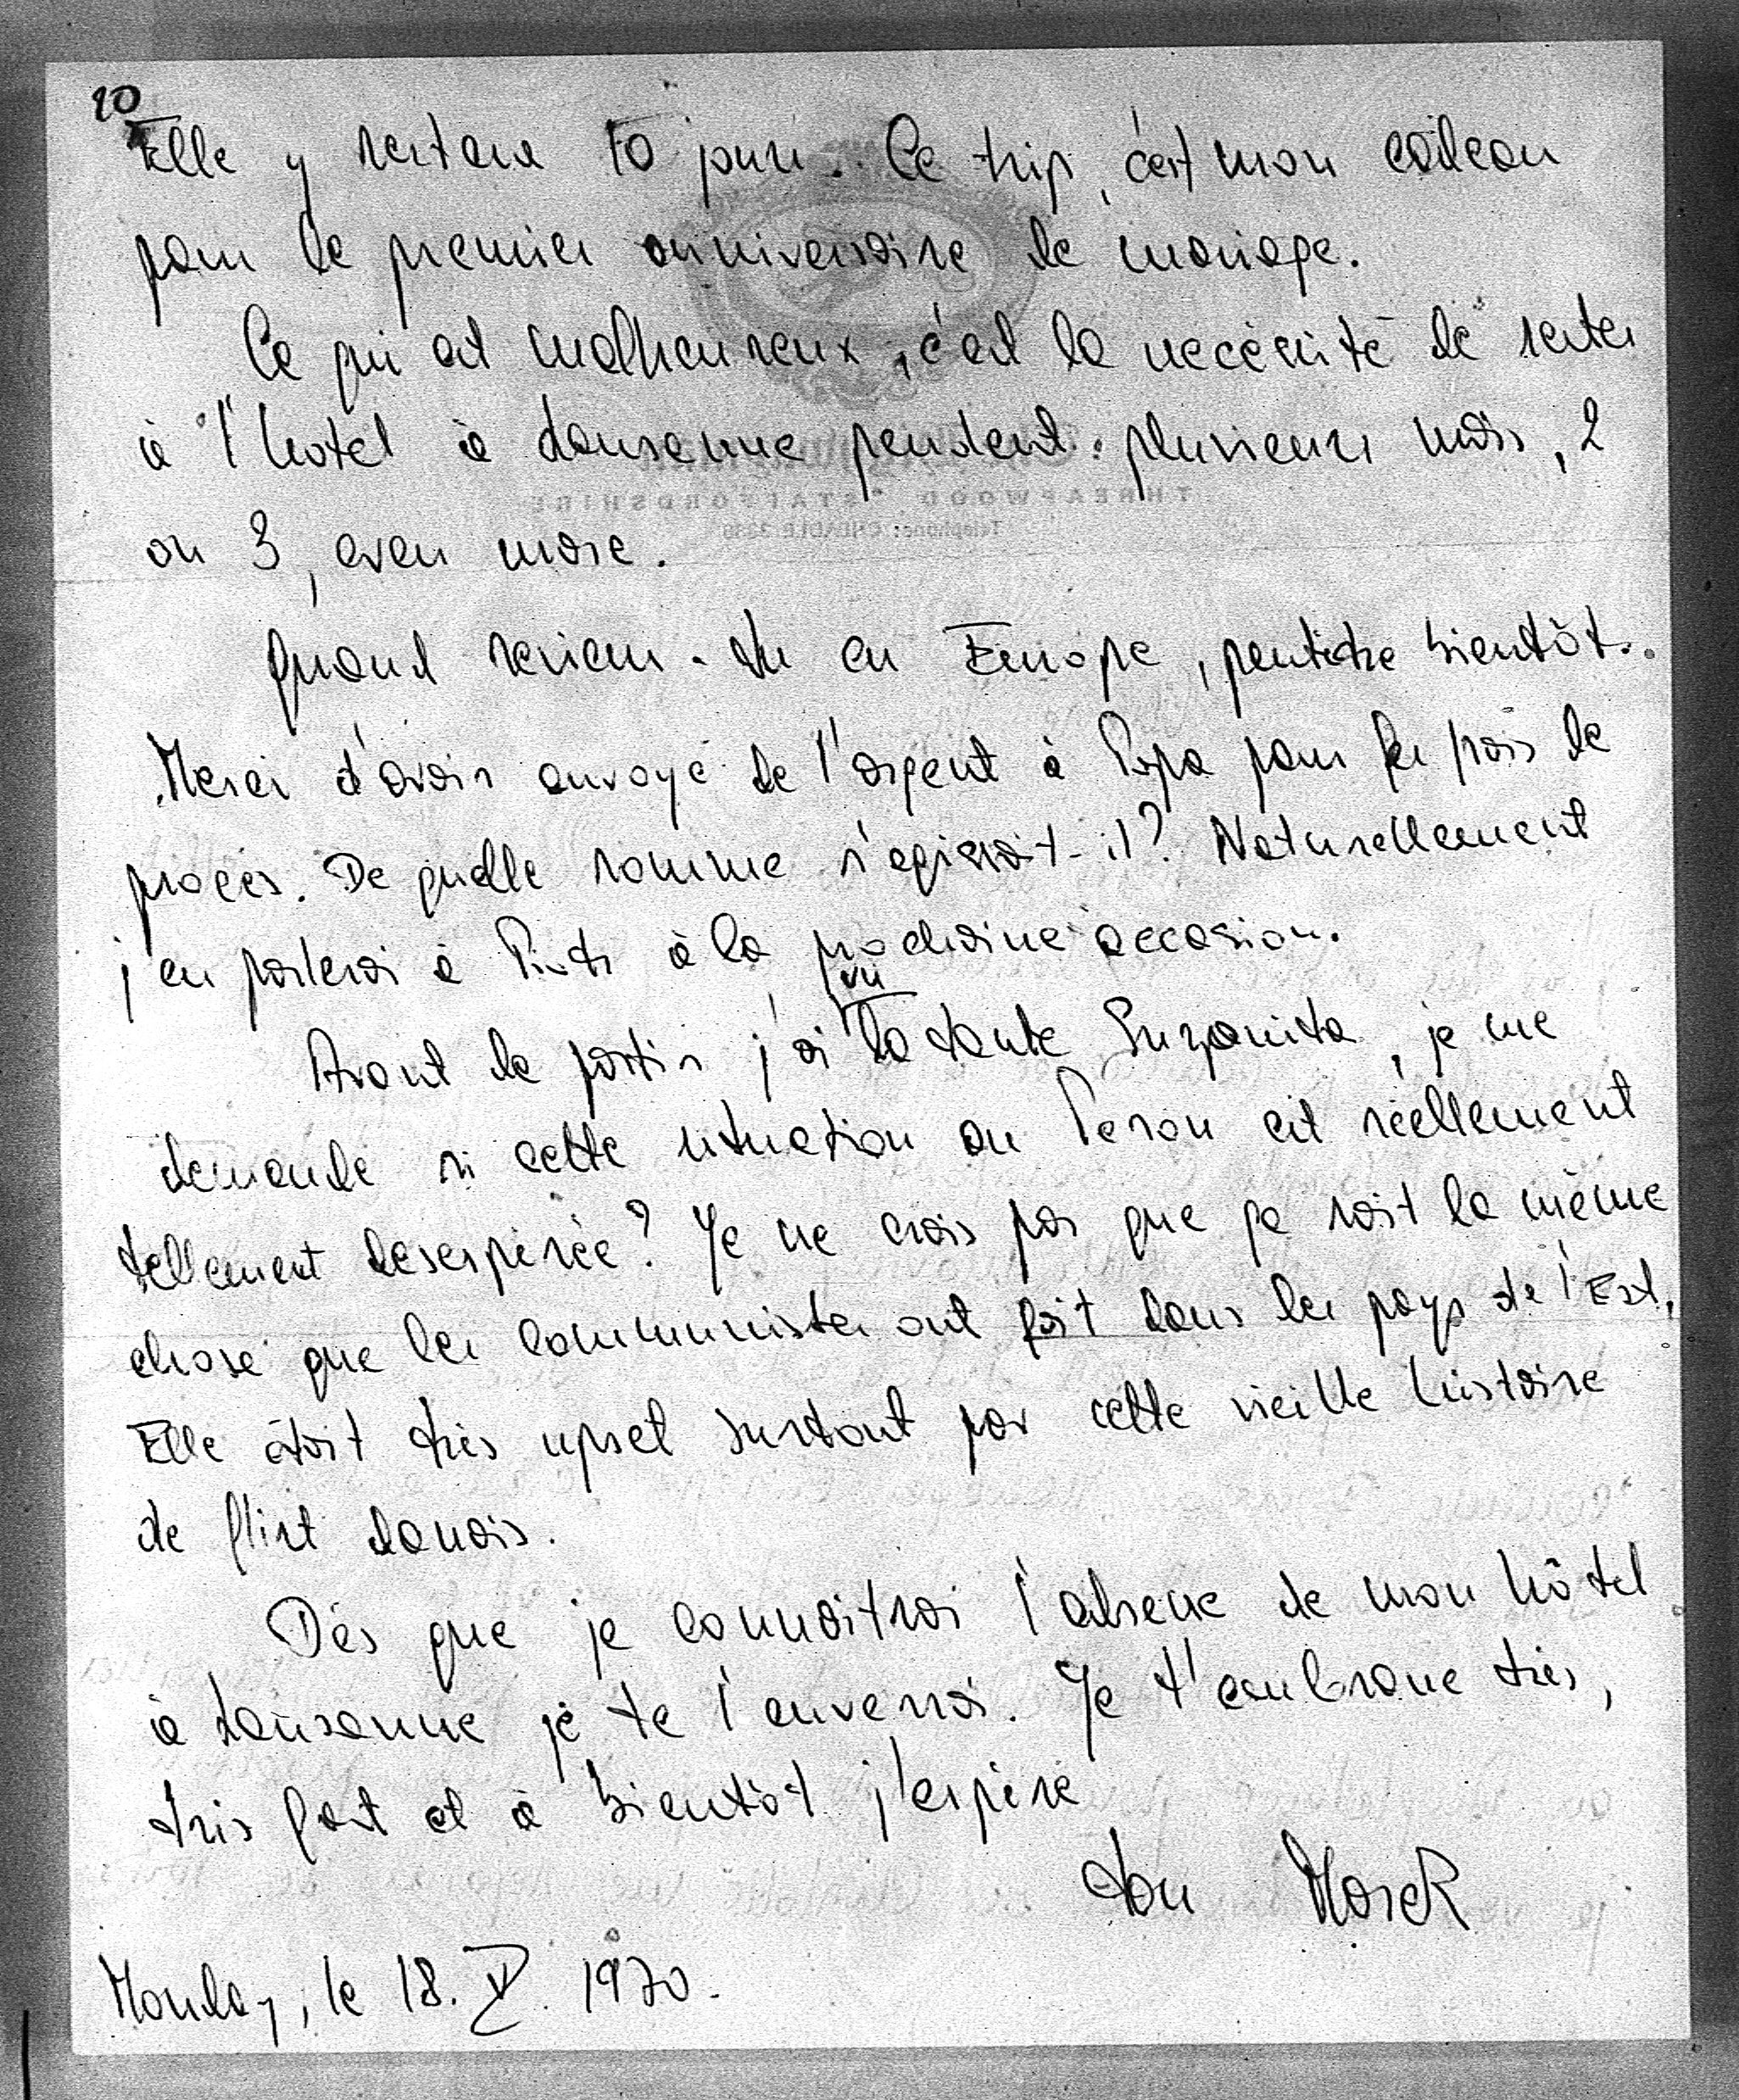 10
Elle y restera 10 jours. Ce trip, c'est mon cadeau
pour le premier anniversaire de mariage.
Ce qui est malheureux, c'est la necéssité de rester
à l'hotel à Lausanne pendent plusieurs mois, 2
ou 3, even more.
Quand reviens-tu en Europe, peutêtre bientôt..
Merci d'avoir envoyé de l'argent à Papa pour les frais de
procès. De quelle somme s'agissait-il? Naturellement
j'en parlerai à à la prochaine occasion.
vu
Avant de partir j'ai la tante Suzanita, je me
demande si cette situation au Perou est réellement
tellement desespérée? Je ne crois pas que ça soit la même
chose que les communistes ont fait dans les pays de l'Est.
Elle était très upset surtout par cette vieille histoire
de flirt danois.
Dès que je connaitrai l'adresse de mon hôtel
à Lausanne je te l'enverrai. Je t'embrasse très,
très fort et à bientôt j'espère
ton Marek
Monday, le 18. V. 1970.
THREAPWOOD STAFFORDSHIRE
Telephone: CHEADLE